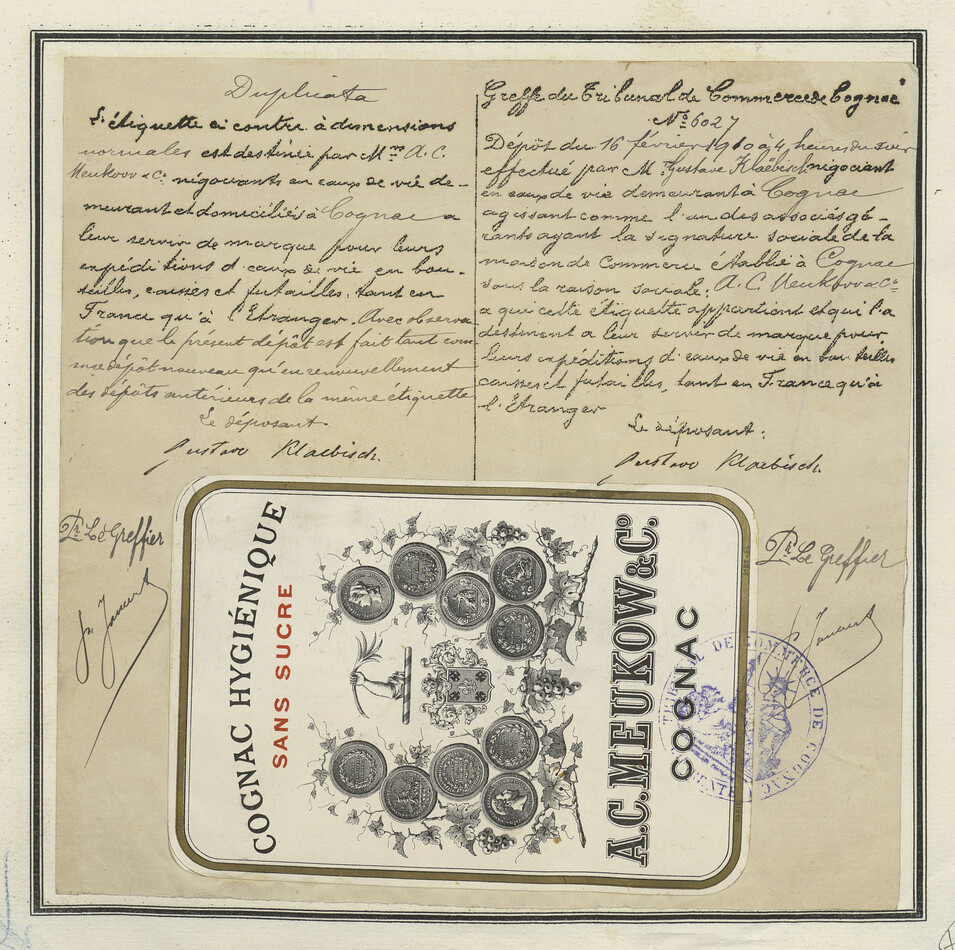 Duplicata
L'étiquette ci contre à dimensions
normales est destinée par Mm A. C.
Meukow & Cie négociants en eaux de vie de-
meurant et domiciliés à Cognac a
leur servir de marque pour leurs
expéditions d'eaux de vie en bou-
teilles, caisses et futailles, tant en
France qu'à l'Etranger. Avec observa
tion que le présent dépôt est fait tant com
me dépôt nouveau qu'en renouvellement
des dépôts antérieurs de la même étiquette
Le déposant
Gustave Klaebisch.
Pr Le Greffier
Greffe du Tribunal de Commerce de Cognac
No 6027
Dépôt du 16 février 1910 à 4 heures du soir
effectué par M. Gustave Klaebisch négociant
en eaux de vie demeurant à Cognac
agissant comme l'un des associés gé-
rants ayant la signature sociale de la
maison de Commerce établie à Cognac
sous la raison sociale: A. C. Meukow & Cie
a qui cette étiquette appartient et qui l'a
destinent a leur servir de marque pour
leurs expéditions d'eaux de vie en bouteilles
caisses et futailles, tant en France qu'à
l'Etranger
Le déposant:
Gustave Klaebisch.
Pr Le Greffier
COGNAC HYGIÉNIQUE
SANS SUCRE
A.C. MEUKOW & Co.
COGNAC
TRIBUNAL DE COMMERCE DE COGNAC